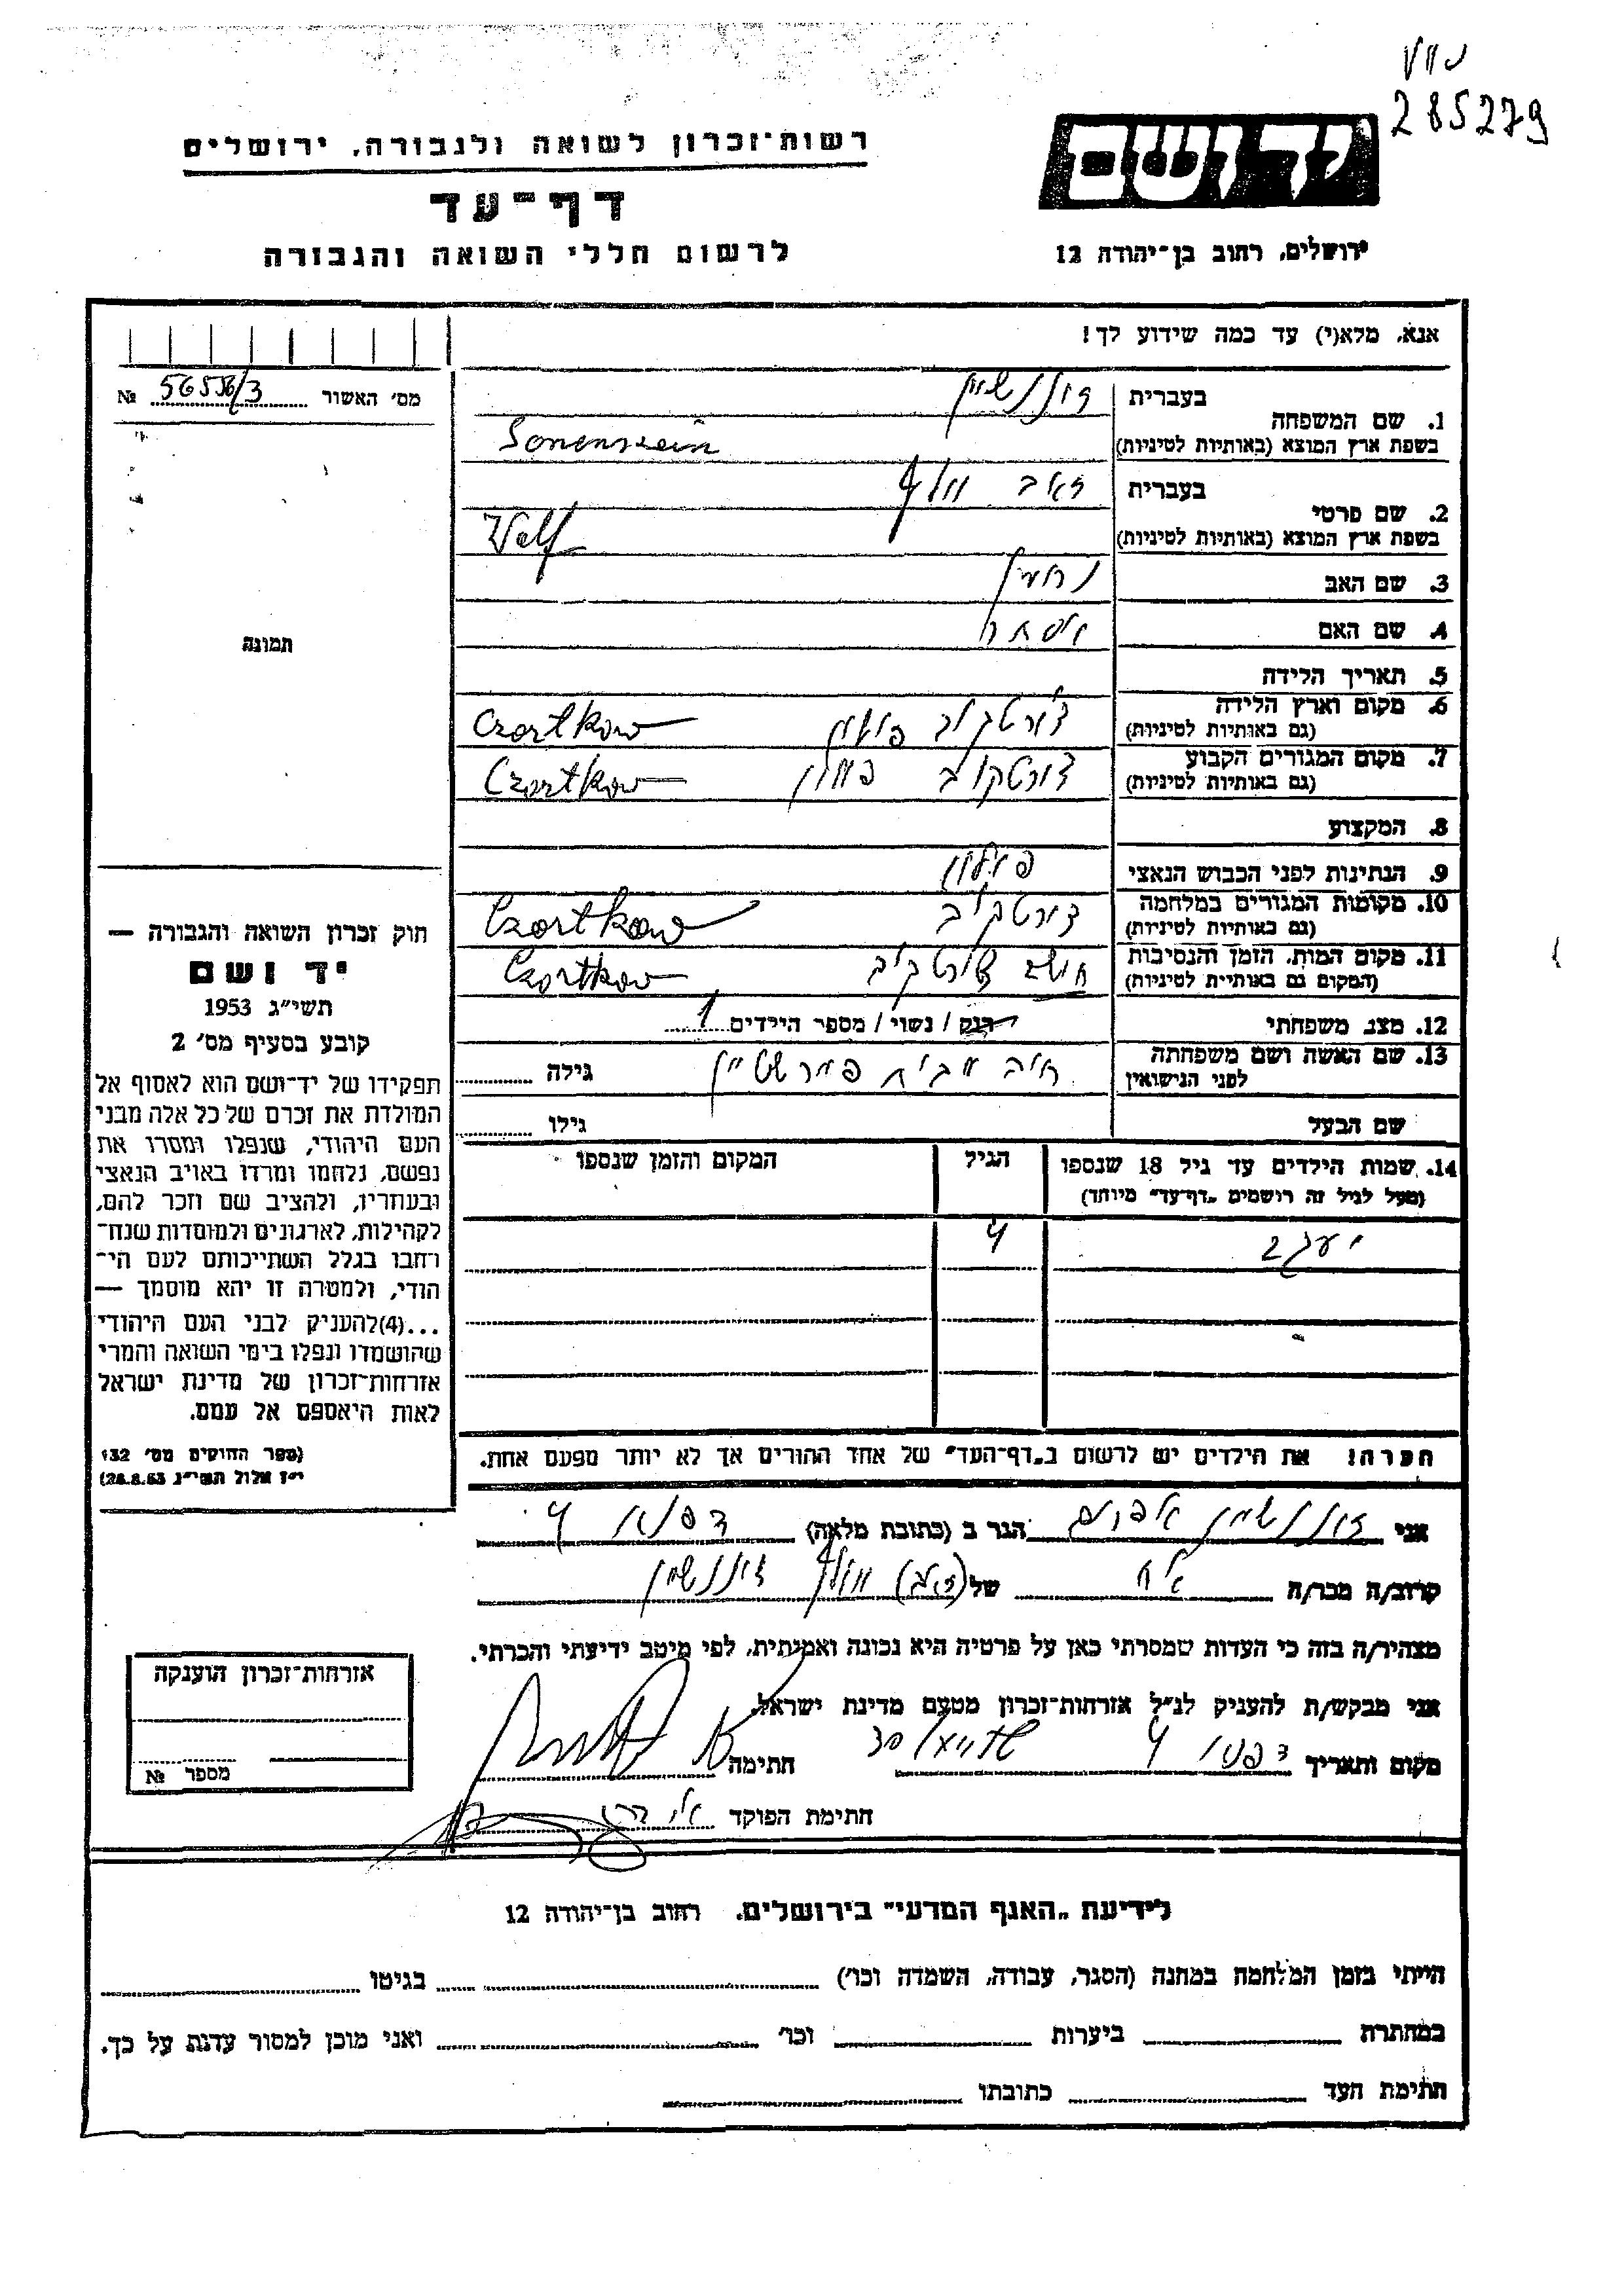 285279
יד ושם
רשות־זכרון לשואה ולגבורה, ירושלים
דף־עד
ירושלים, רחוב בן־יהודה 12
לרשום חללי השואה והגבורה
אנא, מלא(י) עד כמה שידוע לך!
מס׳ האשור 56556/3 №
תמונה
1. שם המשפחה
בעברית זוננשיין
בשפת ארץ המוצא (באותיות לטיניות) Sonenschein
2. שם פרטי
בעברית זאב וולף
בשפת ארץ המוצא (באותיות לטיניות) Volf
3. שם האב נחמן
4. שם האם אסתר
5. תאריך הלידה
6. מקום וארץ הלידה
(גם באותיות לטיניות) צ׳ורטקוב פולין Czortkow
7. מקום המגורים הקבוע
(גם באותיות לטיניות) צורטקוב פולין Czortkow
8. המקצוע
9. הנתינות לפני הכבוש הנאצי פולין
10. מקומות המגורים במלחמה
(גם באותיות לטיניות) צורטקוב Czortkow
11. מקום המות, הזמן והנסיבות
(המקום גם באותיית לטיניות) צורטקוב Czortkow
12. מצב משפחתי רוק / נשוי / מספר הילדים 1
13. שם האשה ושם משפחתה
לפני הנישואין חיה מבית פיירשטיין גילה
שם הבעל גילו
14. שמות הילדים עד גיל 18 שנספו
(מעל לגיל זה רושמים „דף־עד״ מיוחד)
הגיל
המקום והזמן שנספו
יעקב 4
חוק זכרון השואה והגבורה —
יד ושם
תשי״ג 1953
קובע בסעיף מס׳ 2
תפקידו של יד־ושם הוא לאסוף אל
המולדת את זכרם של כל אלה מבני
העם היהודי, שנפלו ומסרו את
נפשם, נלחמו ומרדו באויב הנאצי
ובעוזריו, ולהציב שם וזכר להם,
לקהילות, לארגונים ולמוסדות שנח־
רחבו בגלל השתייכותם לעם הי־
הודי, ולמטרה זו יהא מוסמך —
...(4)להעניק לבני העם היהודי
שהושמדו ונפלו בימי השואה והמרי
אזרחות־זכרון של מדינת ישראל
לאות היאספם אל עמם.
(ספר החוקים מס׳ 132
י״ז אלול תשי״ג 28.8.53)
הערה! את הילדים יש לרשום ב„דף־העד״ של אחד ההורים אך לא יותר מפעם אחת.
אני זוננשיין אפרים הגר ב (כתובת מלאה)
קרוב/ה מכר/ה אח של (זאב) וולף זוננשיין
מצהיר/ה בזה כי העדות שמסרתי כאן על פרטיה היא נכונה ואמיתית, לפי מיטב ידיעתי והכרתי.
אני מבקש/ת להעניק לנ״ל אזרחות־זכרון מטעם מדינת ישראל.
מקום ותאריך חתימה
חתימת הפוקד
אזרחות־זכרון הוענקה
מספר №
לידיעת „האגף המדעי״ בירושלים, רחוב בן־יהודה 12
הייתי בזמן המלחמה במחנה (הסגר, עבודה, השמדה וכו׳) בגיטו
במחתרת ביערות וכו׳ ואני מוכן למסור עדות על כך.
חתימת העד כתובתו